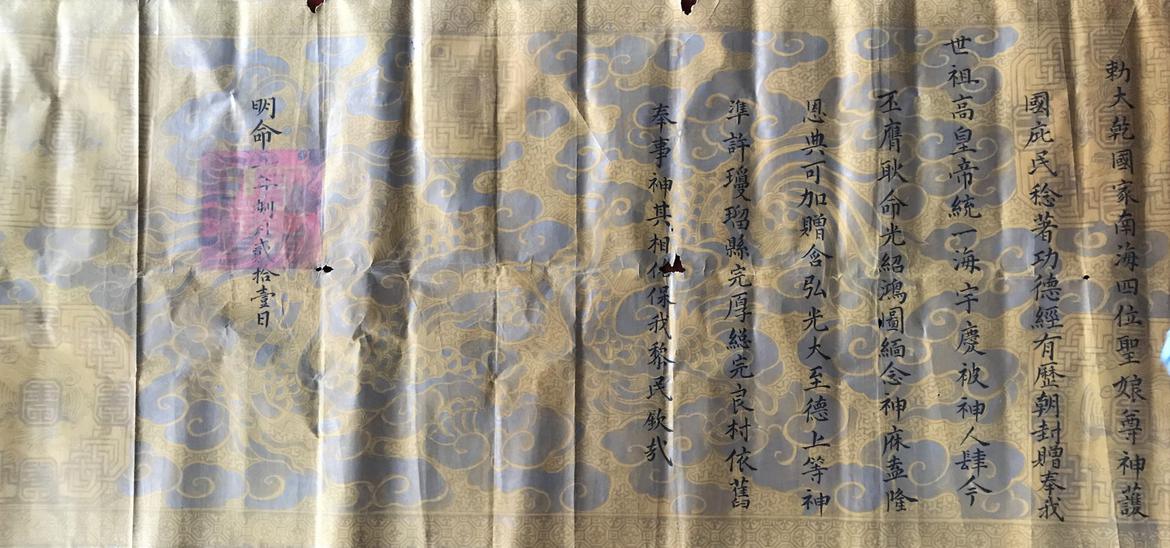 勅大乾國家南海四位聖娘尊神護
國庇民稔著功德經有歷朝封贈奉我
世祖高皇帝統一海宇慶被神人肆今
丕膺耿命光紹鴻圖緬念神庥盍隆
恩典可加贈含弘光大至德上等神
準許瓊瑠縣完厚総完良村依舊
奉事神其相佑保我黎民欽哉
明命年捌月貳拾壹日